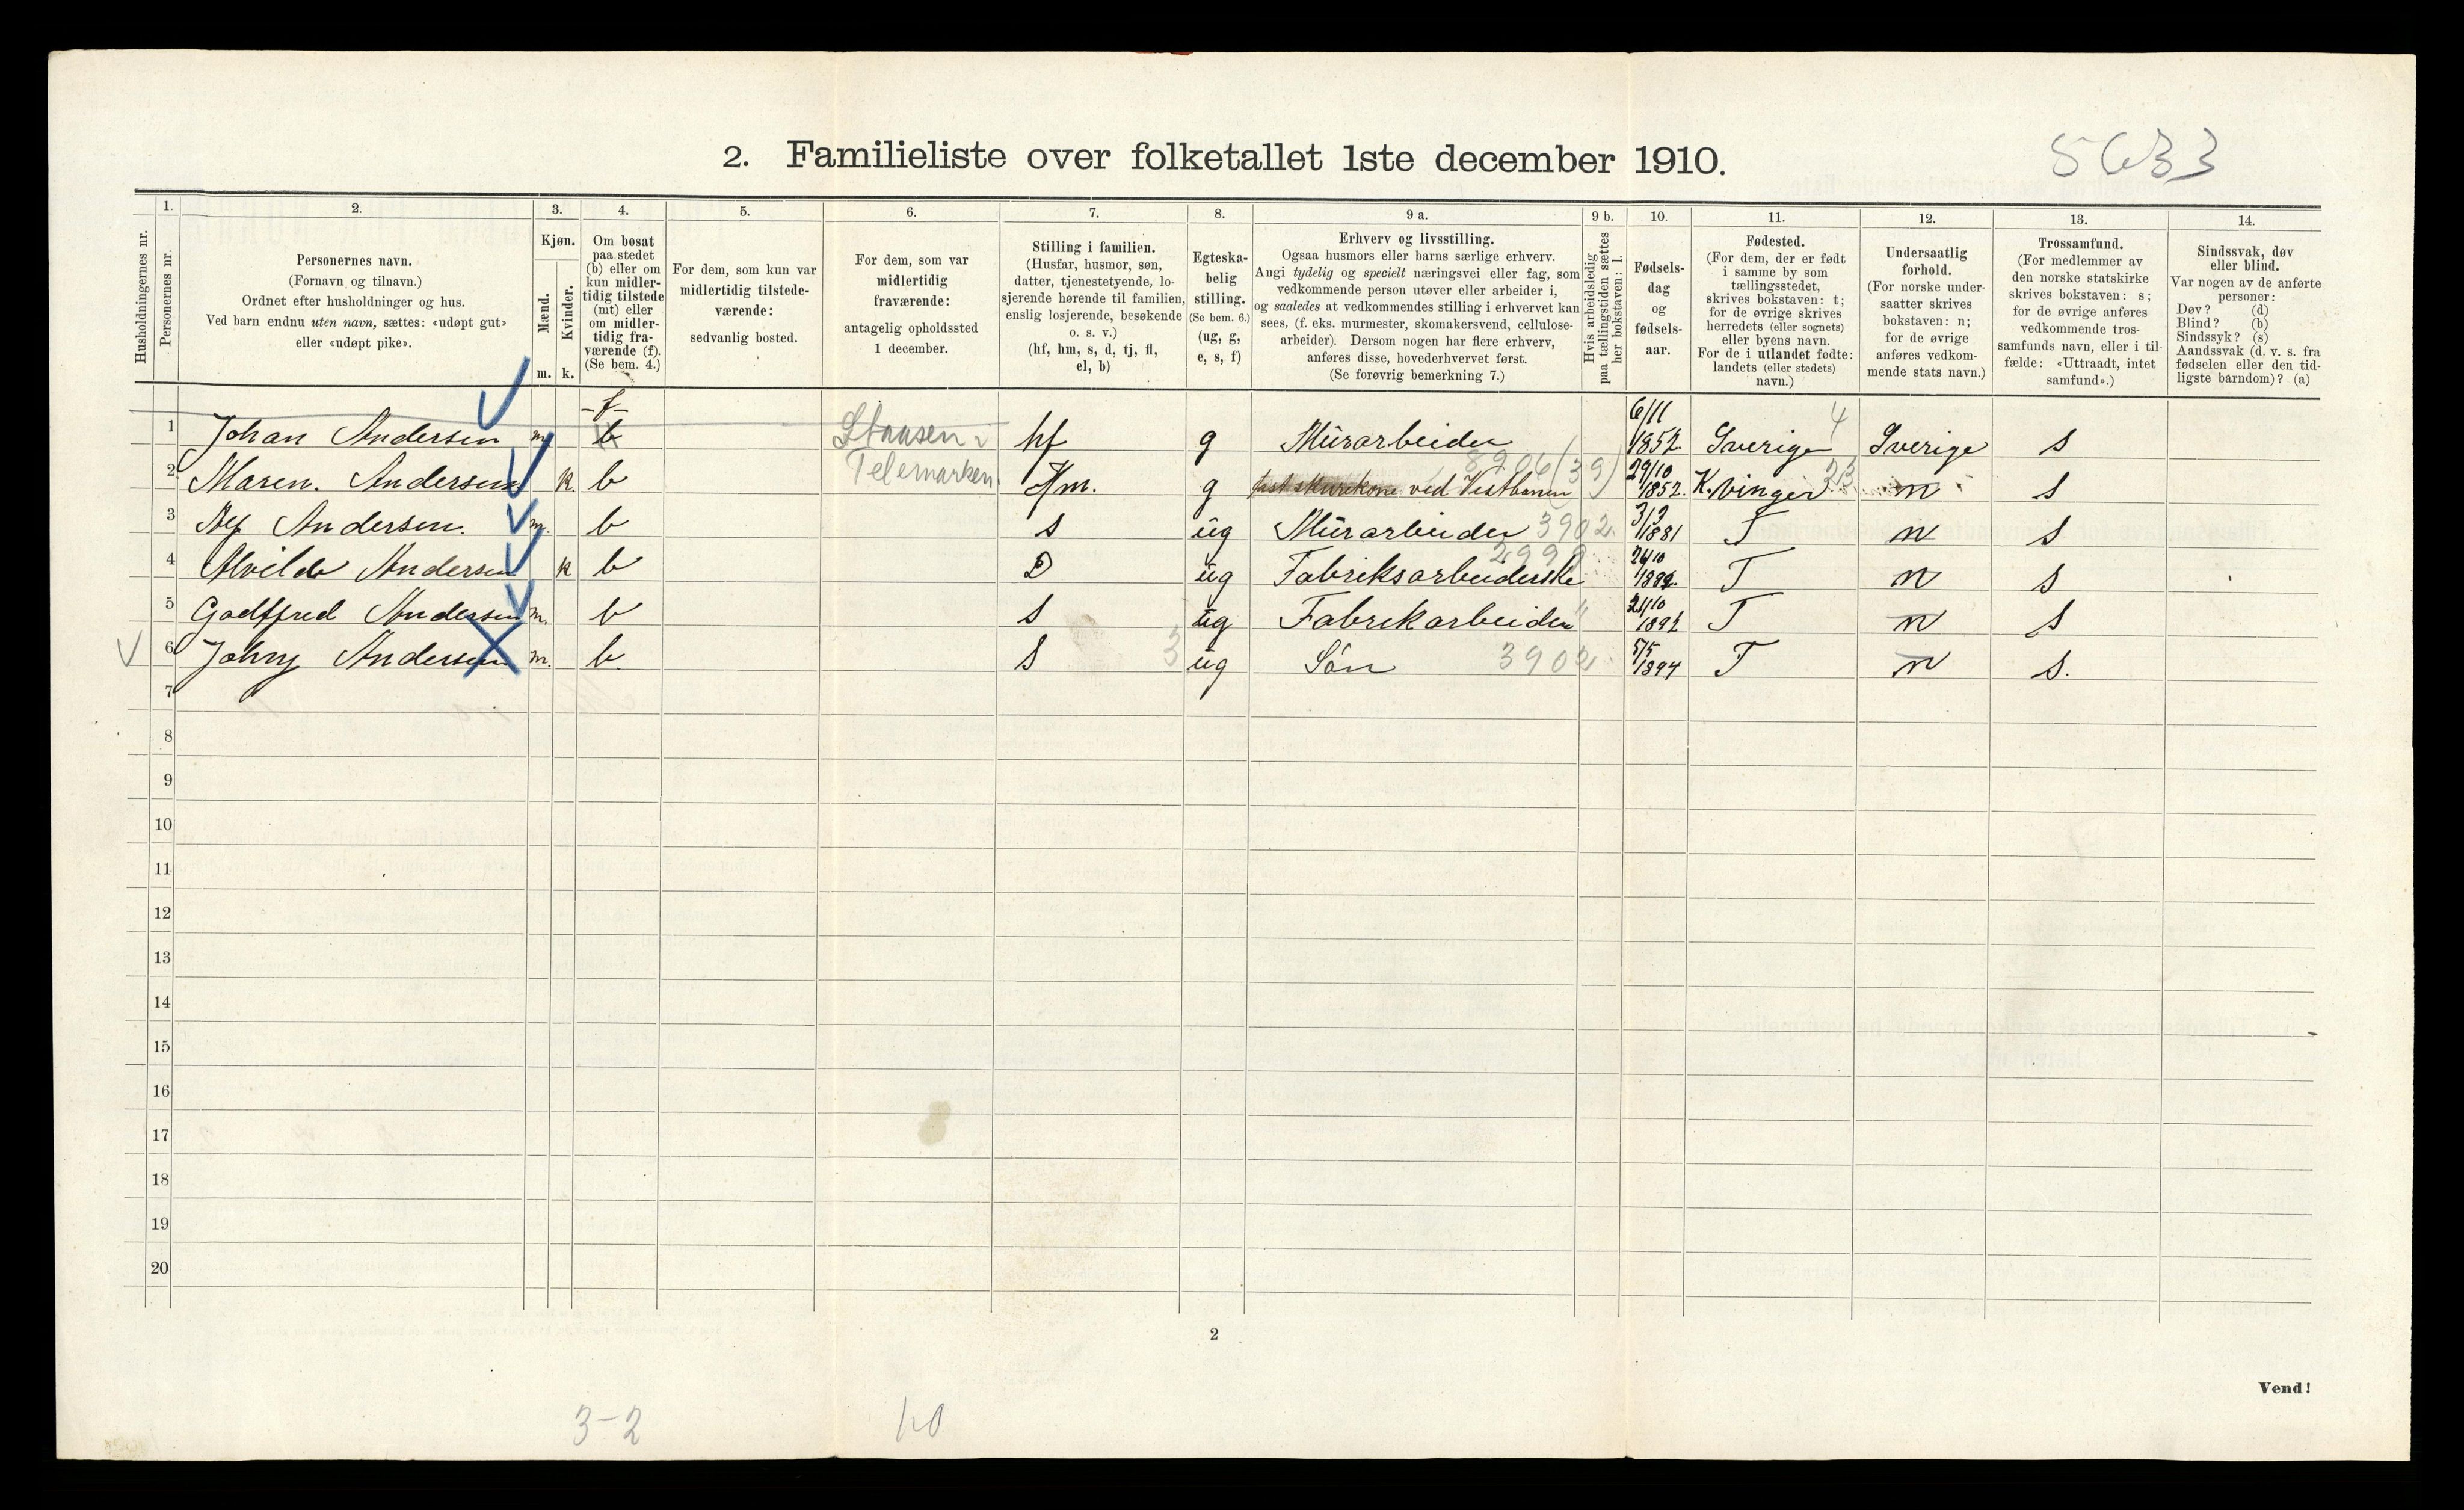 2. Familieliste over folketallet 1ste december 1910.
5633
Husholdningernes nr.
1.
Personernes nr.
2.
Personernes navn.
(Fornavn og tilnavn.)
Ordnet efter husholdninger og hus.
Ved barn endnu uten navn, sættes: «udøpt gut»
eller «udøpt pike».
3.
Kjøn.
Mænd.
Kvinder.
m. k.
4.
Om bosat
paa stedet
(b) eller om
kun midler-
tidig tilstede
(mt) eller
om midler-
tidig fra-
værende (f).
(Se bem. 4.)
5.
For dem, som kun var
midlertidig tilstede-
værende:
sedvanlig bosted.
6.
For dem, som var
midlertidig
fraværende:
antagelig opholdssted
1 december.
7.
Stilling i familien.
(Husfar, husmor, søn,
datter, tjenestetyende, lo-
sjerende hørende til familien,
enslig losjerende, besøkende
o. s. v.)
(hf, hm, s, d, tj, fl,
el, b)
8.
Egteska-
belig
stilling.
(Se bem. 6.)
(ug, g,
e, s, f)
9 a.
Erhverv og livsstilling.
Ogsaa husmors eller barns særlige erhverv.
Angi tydelig og specielt næringsvei eller fag, som
vedkommende person utøver eller arbeider i,
og saaledes at vedkommendes stilling i erhvervet kan
sees, (f. eks. murmester, skomakersvend, cellulose-
arbeider). Dersom nogen har flere erhverv,
anføres disse, hovederhvervet først.
(Se forøvrig bemerkning 7.)
9 b.
Hvis arbeidsledig
paa tællingstiden sættes
her bokstaven: l.
10.
Fødsels-
dag
og
fødsels-
aar.
11.
Fødested.
(For dem, der er født
i samme by som
tællingsstedet,
skrives bokstaven: t;
for de øvrige skrives
herredets (eller sognets)
eller byens navn.
For de i utlandet fødte:
landets (eller stedets)
navn.)
12.
Undersaatlig
forhold.
(For norske under-
saatter skrives
bokstaven: n;
for de øvrige
anføres vedkom-
mende stats navn.)
13.
Trossamfund.
(For medlemmer av
den norske statskirke
skrives bokstaven: s;
for de øvrige anføres
vedkommende tros-
samfunds navn, eller i til-
fælde: «Uttraadt, intet
samfund».)
14.
Sindssvak, døv
eller blind.
Var nogen av de anførte
personer:
Døv? (d)
Blind? (b)
Sindssyk? (s)
Aandssvak (d. v. s. fra
fødselen eller den tid-
ligste barndom)? (a)
1 Johan Andersen m. -f- b hf g Mūrarbeider 6/11 1852 Sverige 4 Sverige s
2 Maren. Andersen k. b Telemarken. Hm. g fast skurekone ved Vestbanen 8906 (39) 29/10 1852. K.vinger 23 n s
3 Alf Andersen. m. b s ūg Mūrarbeider 3902. 3/3 1881 T n s
4 Alvilde Andersen k b D ūg Fabriksarbeiderske 2999 T n s
5 Godtfred Andersen m. b s ūg Fabrikarbeider " 21/10 1892 T n s
6 Johny Andersen m. b. s 3 ūg Sön 3902 5/5 1894 T n s.
7
8
9
10
11
12
13
14
15
16
17
18
19
20
2
Vend!
3-2